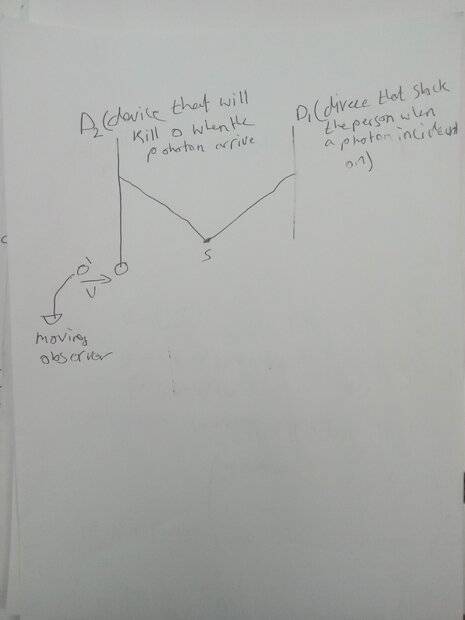 D2 (device that will
kill O when the
photon arrive
D1 (divece that shock
the person when
a photon incident
on)
S
O'
V
O
moving
observer